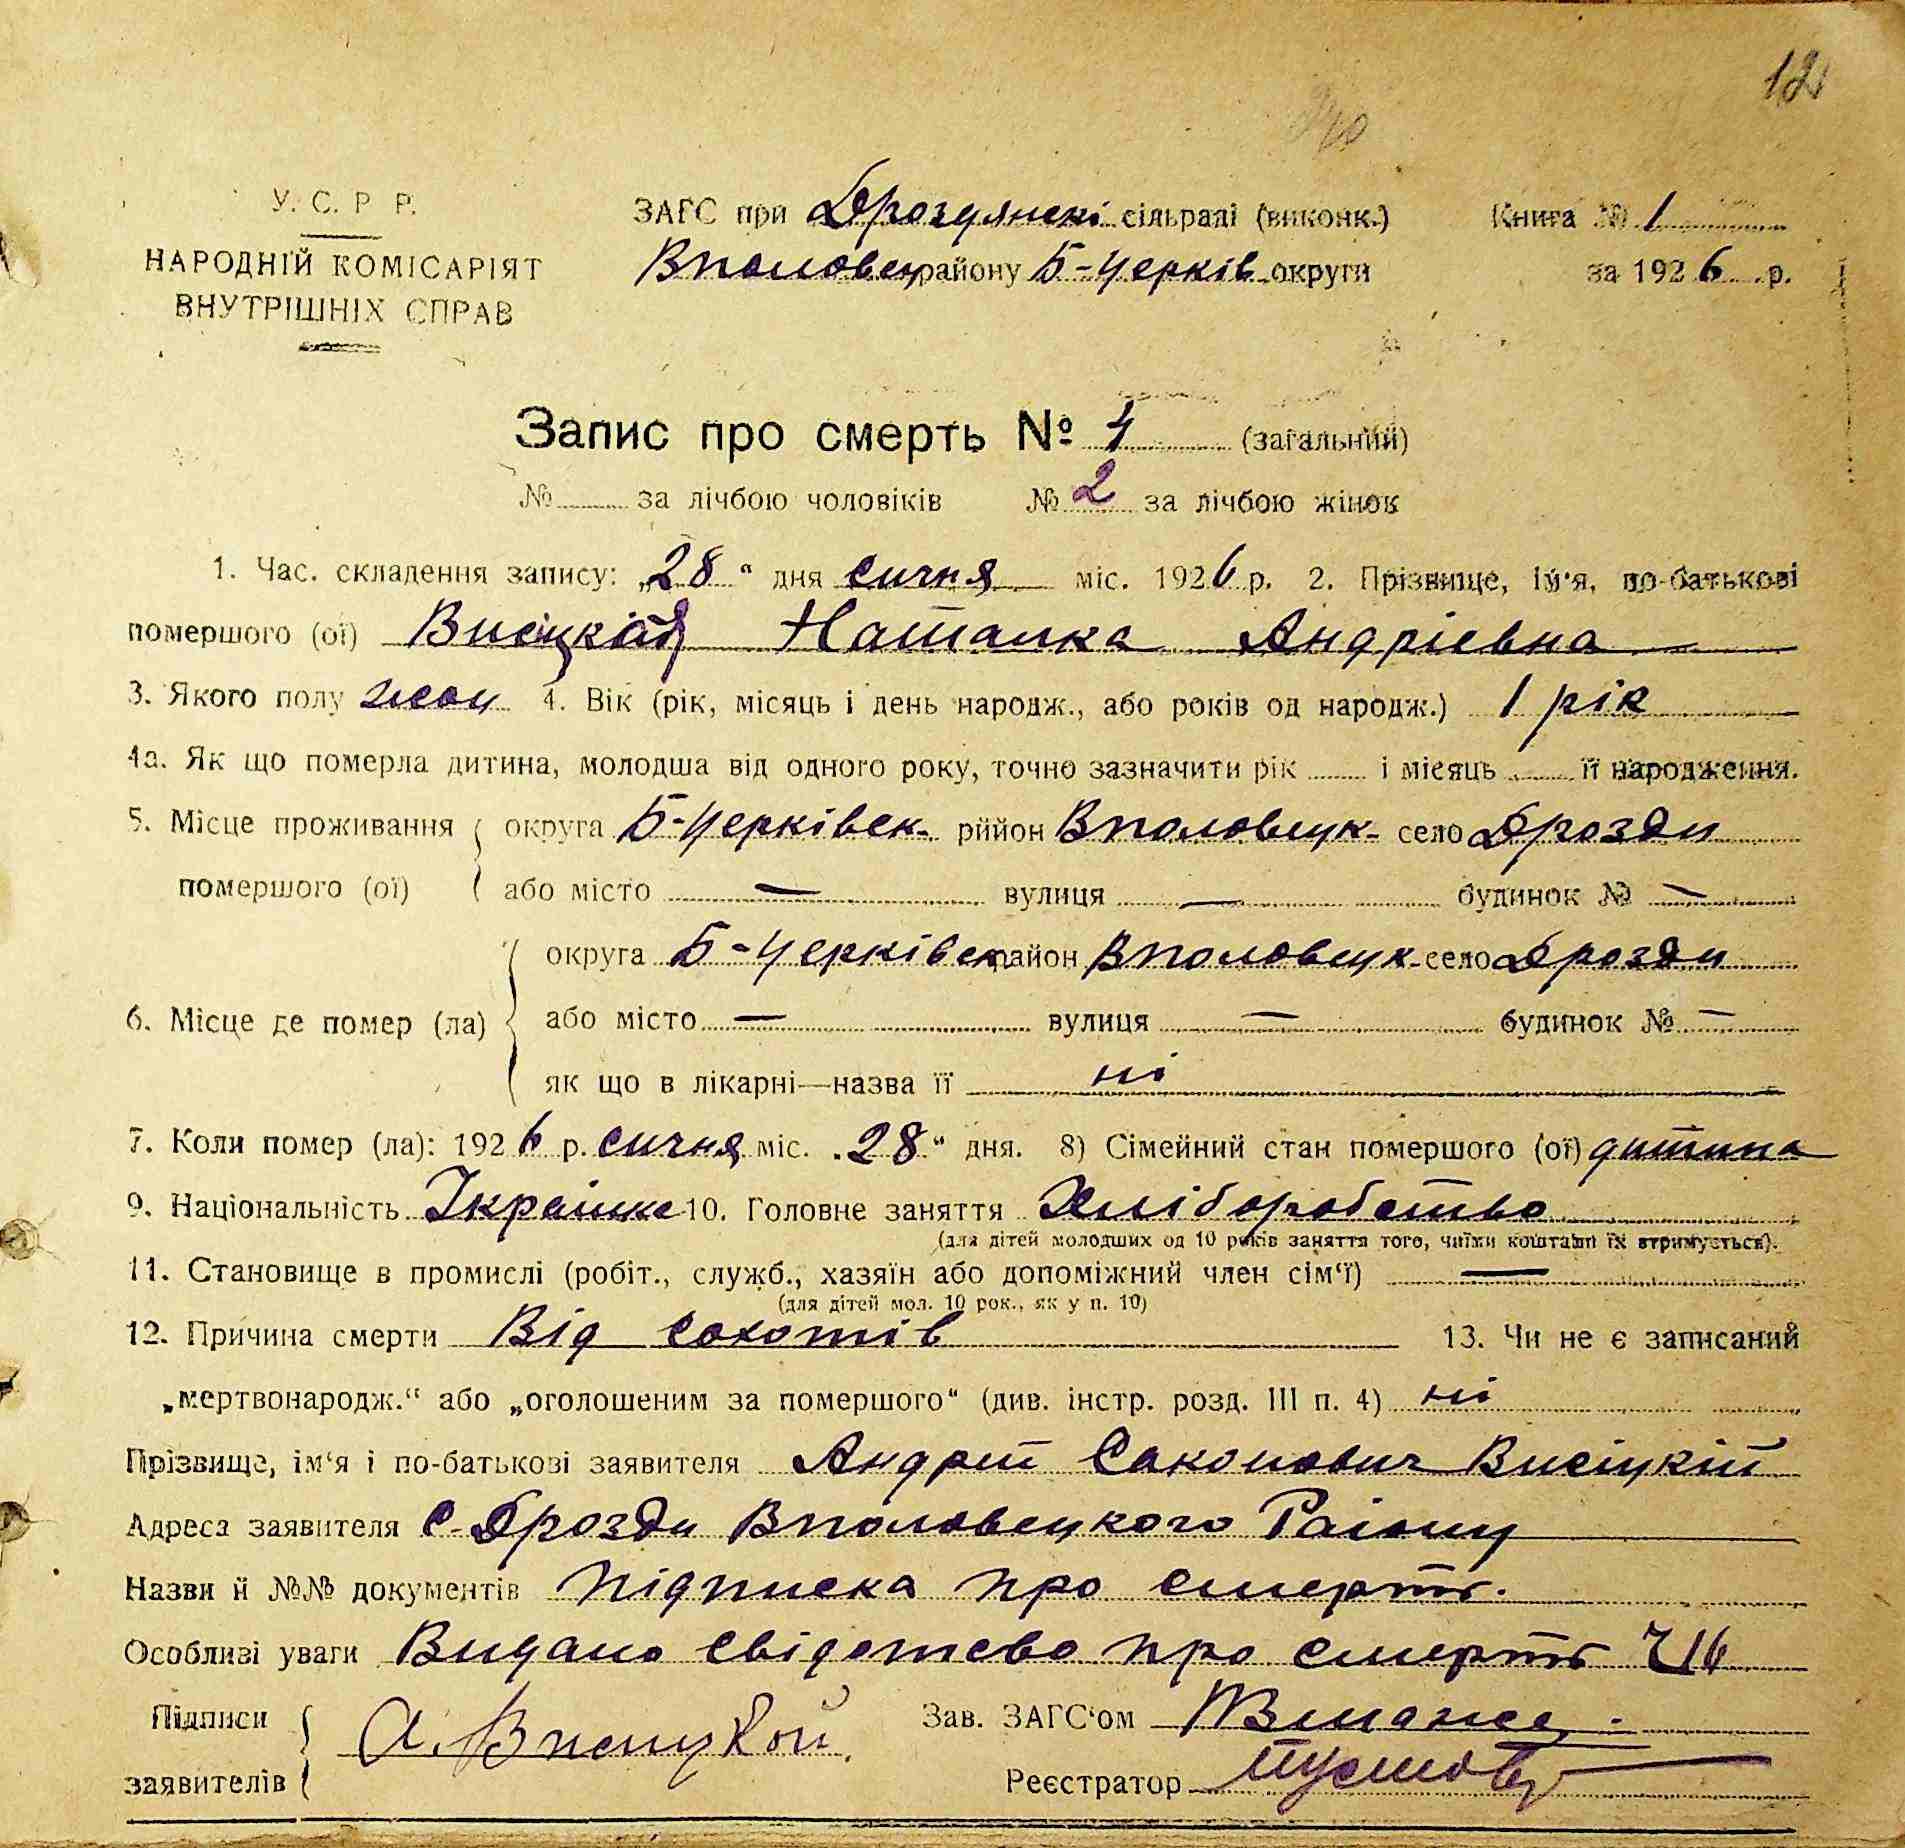 12
У. С. Р Р.
НАРОДНІЙ КОМІСАРІЯТ
ВНУТРІШНІХ СПРАВ
ЗАГС при Дроздянскі сільраді (виконк.) Книга № 1
Вполовец району Б-Церків округи за 1926 р.
Запис про смерть № 4 (загальний)
№ за лічбою чоловіків № 2 за лічбою жінок
1. Час. складення запису: „28“ дня сичня міс. 1926 р. 2. Прізвище, ім‘я, по-батькові
помершого (ої) Висіцкая Наталка Андріевна
3. Якого полу жон 4. Вік (рік, місяць і день народж., або років од народж.) 1 рік
4а. Як що померла дитина, молодша від одного року, точно зазначити рік і місяць її народження.
5. Місце проживання округа Б-Церківск- рийон Вполовецк- село Дрозди
помершого (ої) або місто — вулиця — будинок № —
округа Б-Церківск район Вполовецк- село Дрозди
6. Місце де помер (ла) або місто — вулиця — будинок № —
як що в лікарні—назва її ні
7. Коли помер (ла): 1926 р. сичня міс. „28“ дня. 8) Сімейний стан помершого (ої) дитина
9. Національність Украінка 10. Головне заняття Хліборобство
(для дітей молодших од 10 років заняття того, чиїми коштами їх втримується).
11. Становище в промислі (робіт., служб., хазяїн або допоміжний член сім‘ї) —
(для дітей мол. 10 рок., як у п. 10)
12. Причина смерти Від сохотів 13. Чи не є записаний
„мертвонародж.“ або „оголошеним за помершого“ (див. інстр. розд. III п. 4) ні
Прізвище, ім‘я і по-батькові заявителя Андрій Висіцкій
Адреса заявителя С-Дрозди Вполовецкого Раіону
Назви й №№ документів Підписка про смерть.
Особливі уваги Видано свідотсво про смерть
Підписи А. Висицкой Зав. ЗАГС‘ом
заявителів Реєстратор